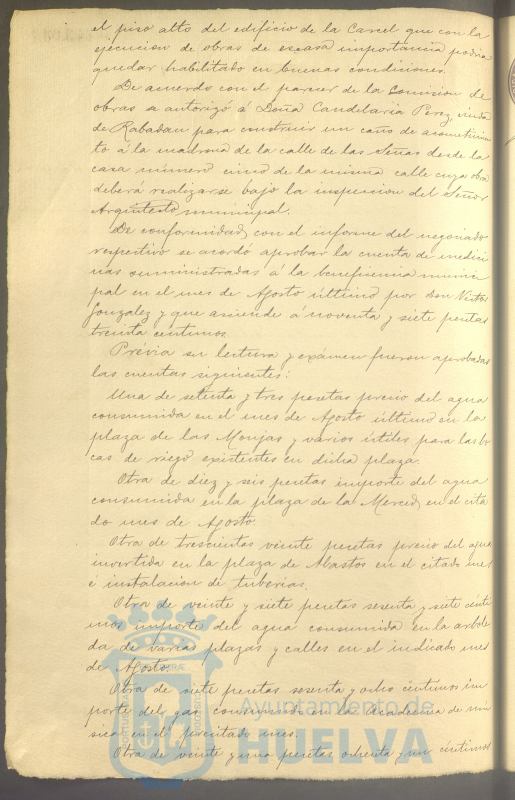 el piso alto del edificio de la Carcel que con la
ejecucion de obras de escasa importancia podria
quedar habilitado en buenas condiciones.
De acuerdo con el parecer de la Comision de
obras se autorizó á Doña Candelaria Perez, viuda
de Rabadan para construir un caño de acometimien
to á la madrona de la calle de las Señas desde la
casa número cinco de la misma calle cuya obra
deberá realizarse bajo la inspeccion del Señor
Arquitecto municipal.
De conformidad con el informe del negociado
respectivo se acordó aprobar la cuenta de medici
nas suministradas á la beneficencia munici
pal en el mes de Agosto último por Don Victor
Gonzalez y que asciende á noventa y siete pesetas
treinta centimos.
Prévia su lectura y exámen fueron aprobadas
las cuentas siguientes:
Una de setenta y tres pesetas precio del agua
consumida en el mes de Agosto último en la
plaza de las Monjas y varios útiles para las bo
cas de riego existentes en dicha plaza.
Otra de diez y seis pesetas importe del agua
consumida en la plaza de la Merced, en el cita
do mes de Agosto.
Otra de trescientas veinte pesetas precio del agua
invertida en la plaza de Abastos en el citado mes
é instalacion de tuberias.
Otra de veinte y siete pesetas sesenta y siete cénti
mos importe del agua consumida en la arbole
da de varias plazas y calles en el indicado mes
de Agosto.
Otra de siete pesetas sesenta y ocho céntimos im
porte del gas consumido en la Academia de mú
sica en el precitado mes.
Otra de veinte y una pesetas ochenta y un céntimos
Ayuntamiento de
HUELVA